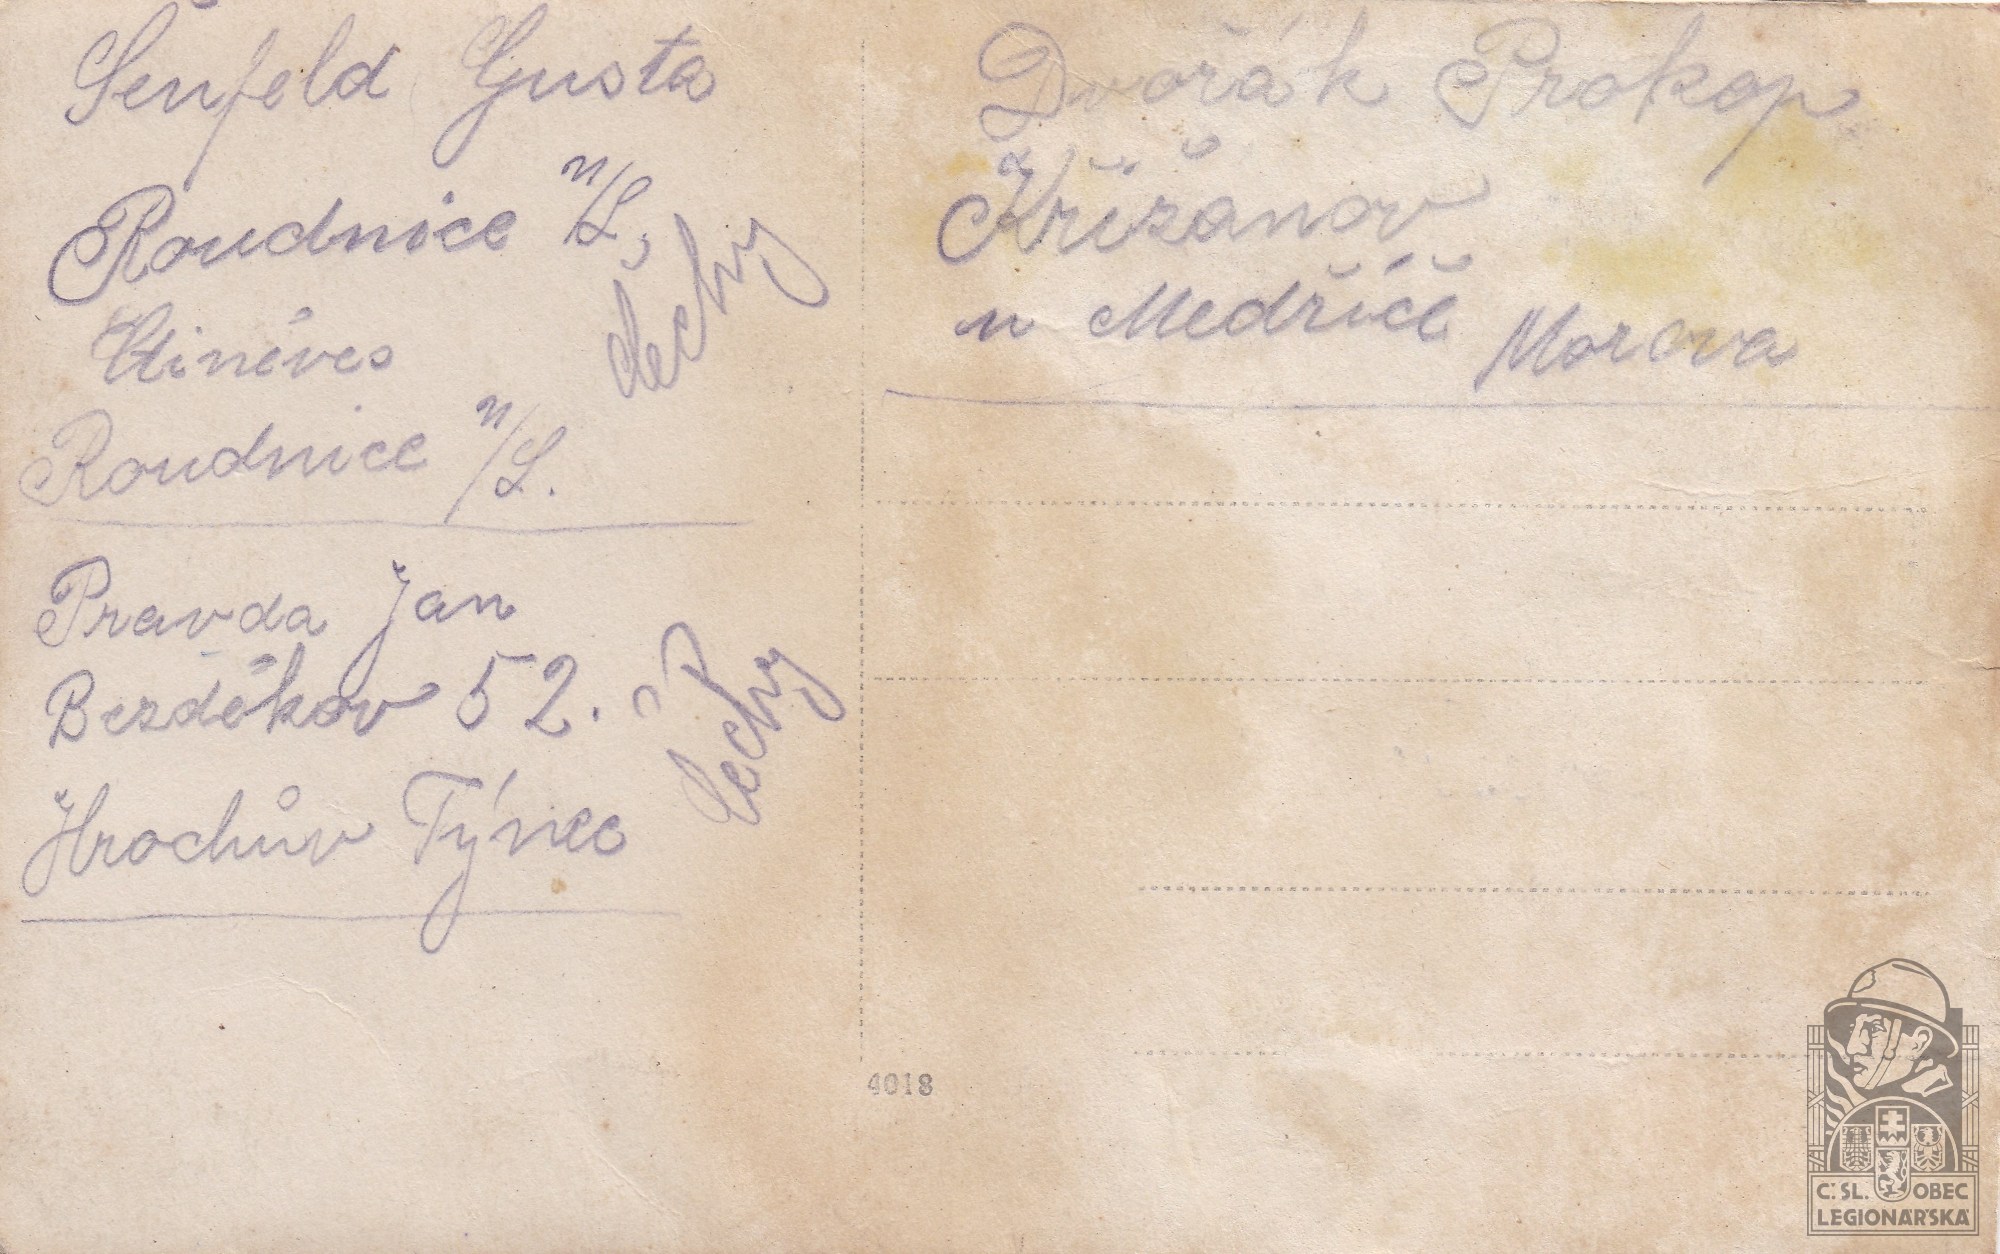 Senfeld Gusta
Roudnice n/L,
Čechy
Ctiněves
Roudnice n/L.
Pravda Jan
Bezděkov 52.
Hrochův Týnec
Čechy
Dvořák Prokop
Křižanov
u Medříče Morava
4018
Č.SL. OBEC
LEGIONÁŘSKÁ